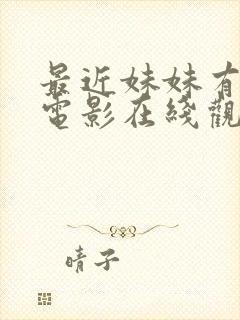 最近妹妹有
電影在綫觀
晴子